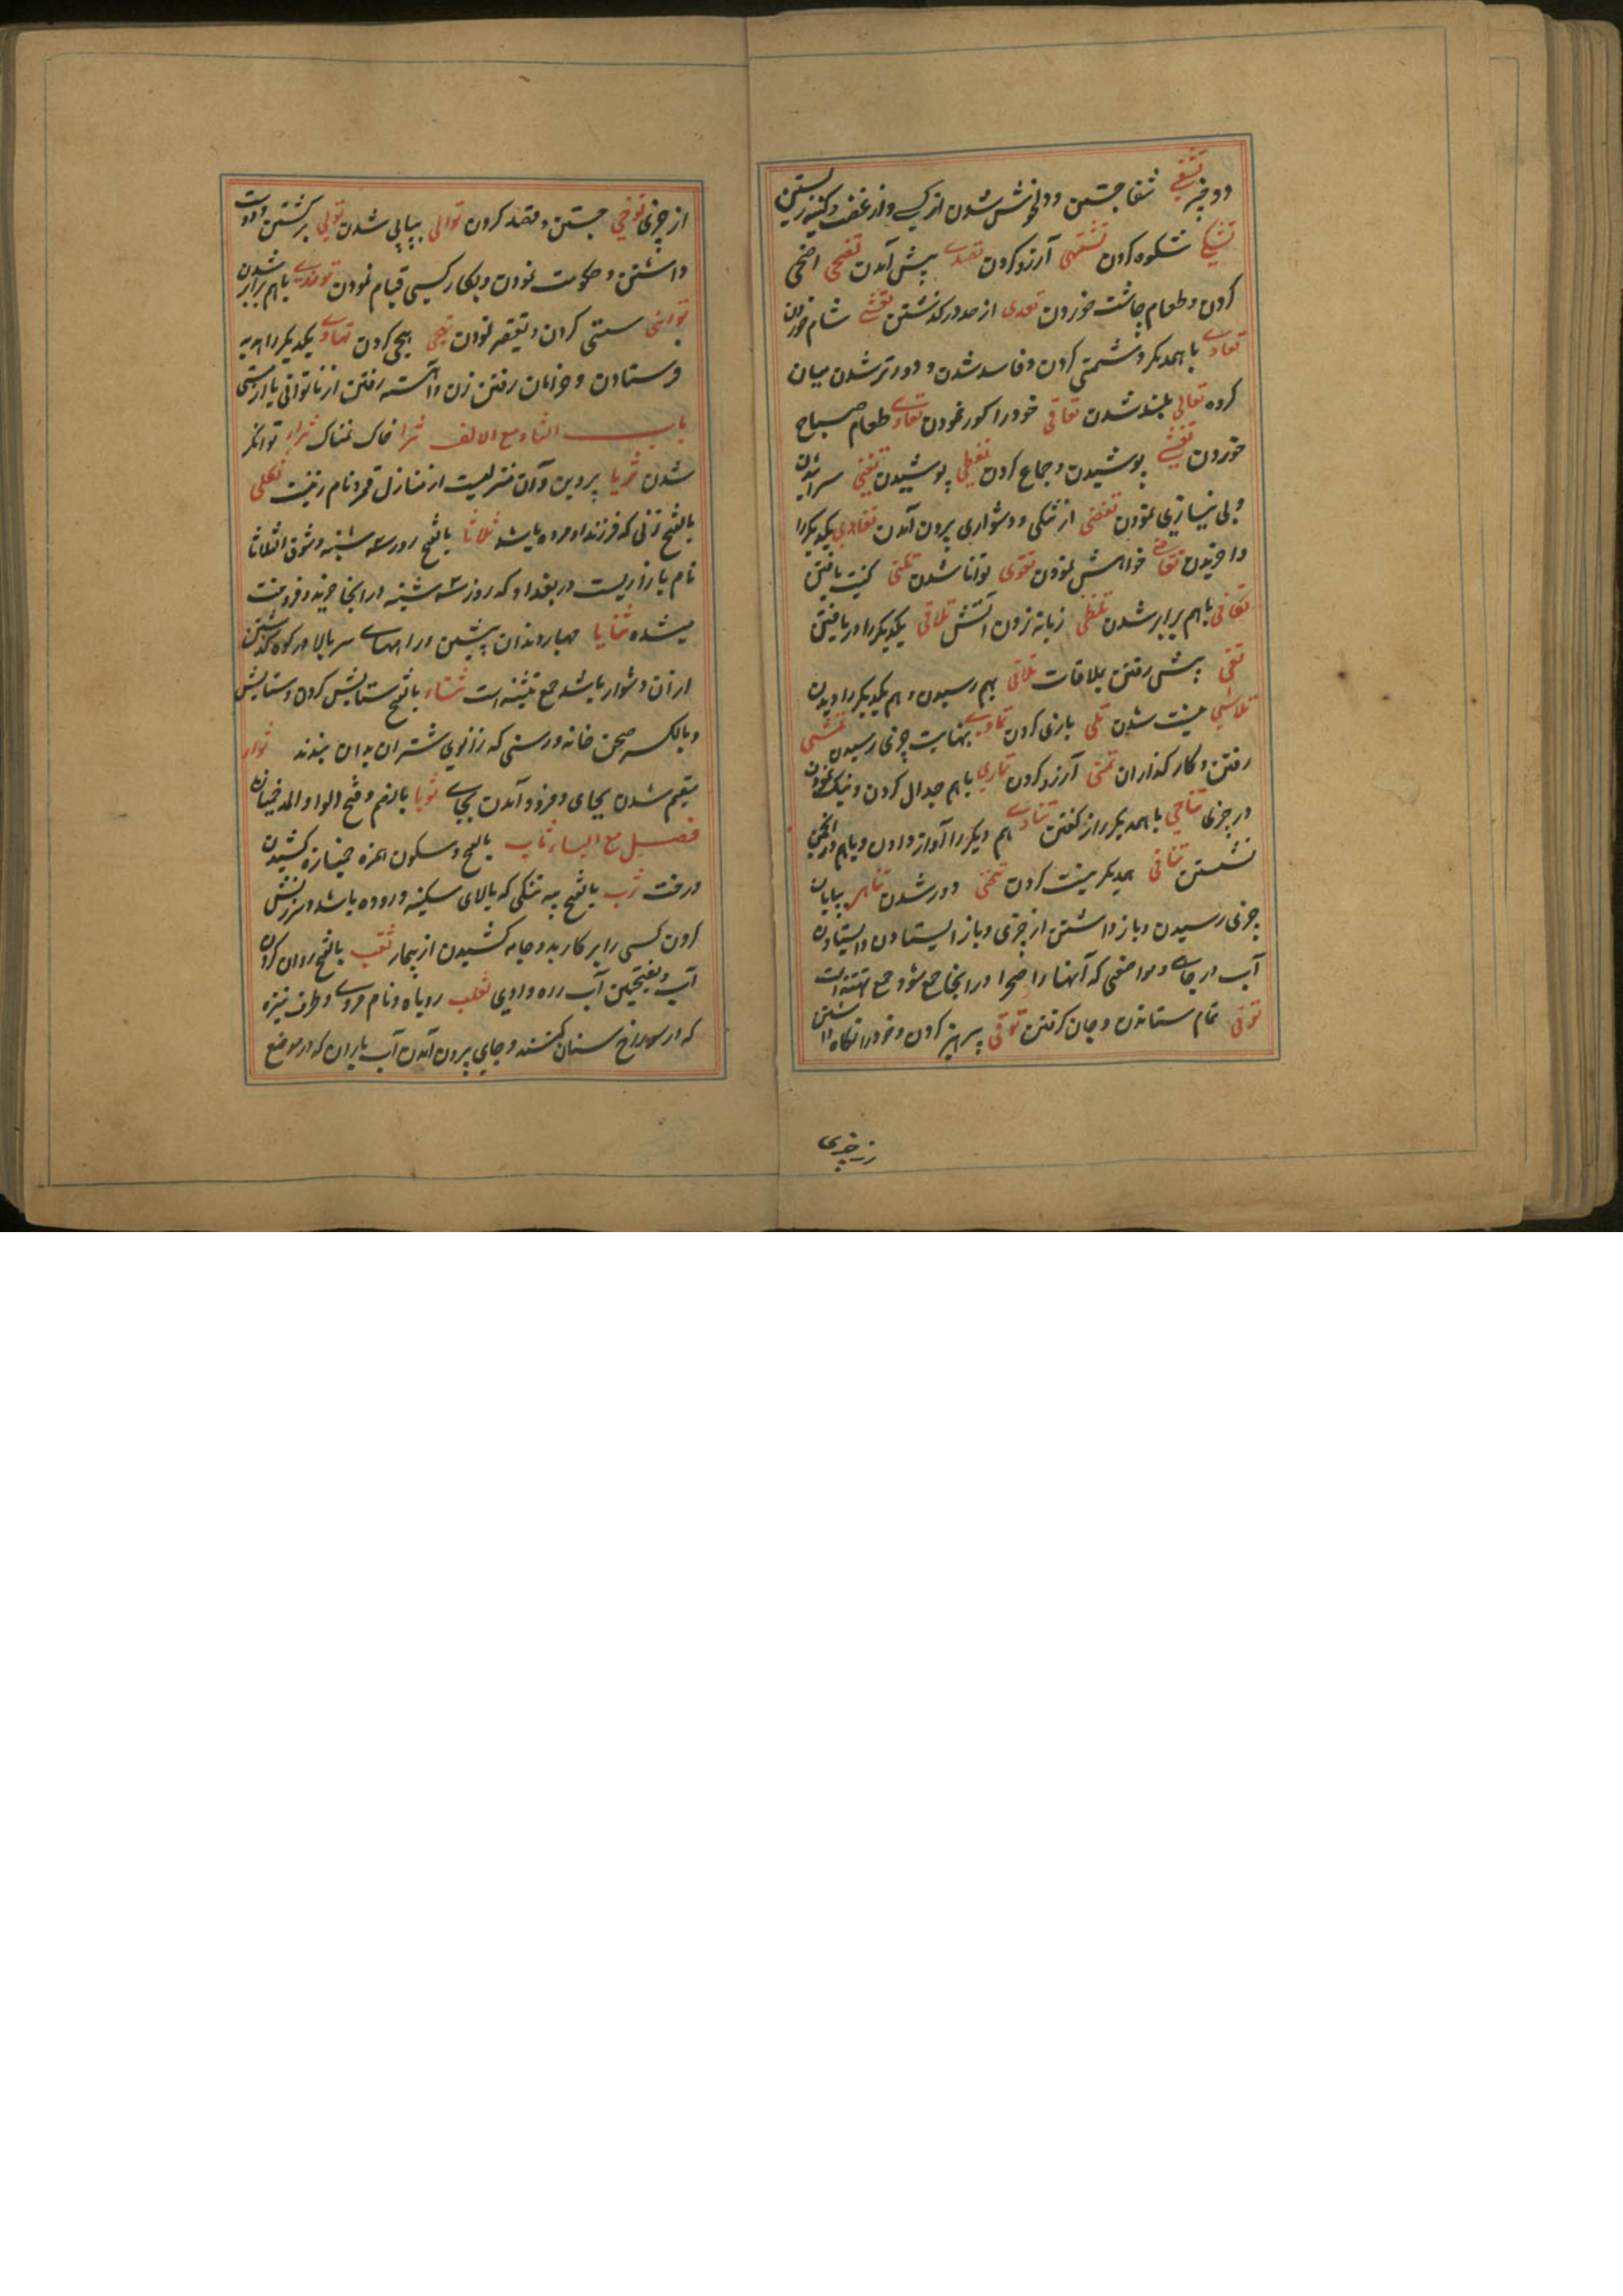 دو چیز تشفی شفا جستن و دلخوش شدن از کسی و از غضب و کینه رستن
تشکی شکوه کردن تشتهی آرزو کردن تصدی پیش آمدن تضحی اضحی
کردن و طعام چاشت خوردن تعدی از حد در گذشتن تعشی شام خوردن
تعادی با همدیگر دشمنی کردن و فاسد شدن و دورتر شدن میان
کروه تعالی بلند شدن تعامی خود را کور نمودن تغدی طعام صباح
خوردن تغشی پوشیدن و جماع کردن تغطی پوشیدن تغنی سرائیدن
و بی نیازی نمودن تفصی از تنکی و دشواری بیرون آمدن تفادی یکدیکر را
وا خریدن تقاضی خواهش نمودن تقوی توانا شدن تکنی کنیت یافتن
تکافی باهم برابر شدن تلظی زبانه زدن آتش تلافی یکدیکر را دریافتن
تلقی پیش رفتن بملاقات تلاقی بهم رسیدن و هم یکدیکر را دیدن
تلاشی نیست شدن تلهی بازی کردن تمادی بنهایت چیزی رسیدن تمشی
رفتن و کار کذاردن تمنی آرزو کردن تماری باهم جدال کردن و نیک نمودن
در چیزی تناجی با همدیکر راز کفتن تنادی هم دیکر را آواز دادن و باهم در انجمن
نشستن تنافی همدیکر نیست کردن تنحی دور شدن تناهی بپایان
چیزی رسیدن و باز داشتن از چیزی و باز ایستادن و ایستادن
آب در جای و مواضعی که آبها را صحرا در انجا جمع شود جمع تنهیه است
توفی تمام ستاندن و جان کرفتن توقی پرهیز کردن و خود را نکاه داشتن
از چیزی
از چیزی توخی جستن و قصد کردن توالی پیاپی شدن تولی برکشتن و دوست
داشتن و حکومت نمودن و بکار کسی قیام نمودن توازی باهم برابر شدن
توانی سستی کردن و تقصیر نمودن تهجی هجی کردن تهادی یکدیکر را هدیه
فرستادن و خرامان رفتن زن و آهسته رفتن از ناتوانی یا از مستی
باب الثاء مع الالف ثرا خاک نمناک ثراء توانکر
شدن ثریا پروین و آن منزلیست از منازل قمر و نام زنیست ثکلی
بالفتح زنی که فرزند او مرده باشد ثلاثا بالفتح روز سه شنبه و سوق الثلاثا
نام بازاریست در بغداد که روز سه شنبه در انجا خرید و فروخت
میشده ثنایا چهار دندان پیشین و راههای سر بالا در کوه که کذشتن
از آن دشوار باشد جمع ثنیه است ثناء بالفتح ستایش کردن و ستایش
و بالکسر صحن خانه و رسنی که زانوی شتران بدان بندند ثواء
مقیم شدن بجای و فرود آمدن بجای ثوبا بالضم و فتح الواو والمد خمیازه
فصل مع الباء ثاب بالفتح و سکون همزه خمیازه کشیدن
درخت ثرب بالفتح پیه تنکی که بالای سکنبه و روده باشد و سرزنش
کردن کسی را بر کار بد و جامه کشیدن از بیمار ثعب بالفتح روان کردن
آب و بفتحتین آب رره وادی ثعلب روباه و نام مردی و طرف نیزه
که در سوراخ سنان کنند و جای بیرون آمدن آب باران که در موضع